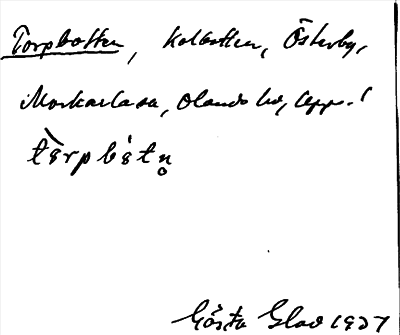 Torpbotten, Kolbotten, Österby,
Morkarla sn, Olands hd, Uppl.
tòrpbótn̥
Gösta Glad 1927